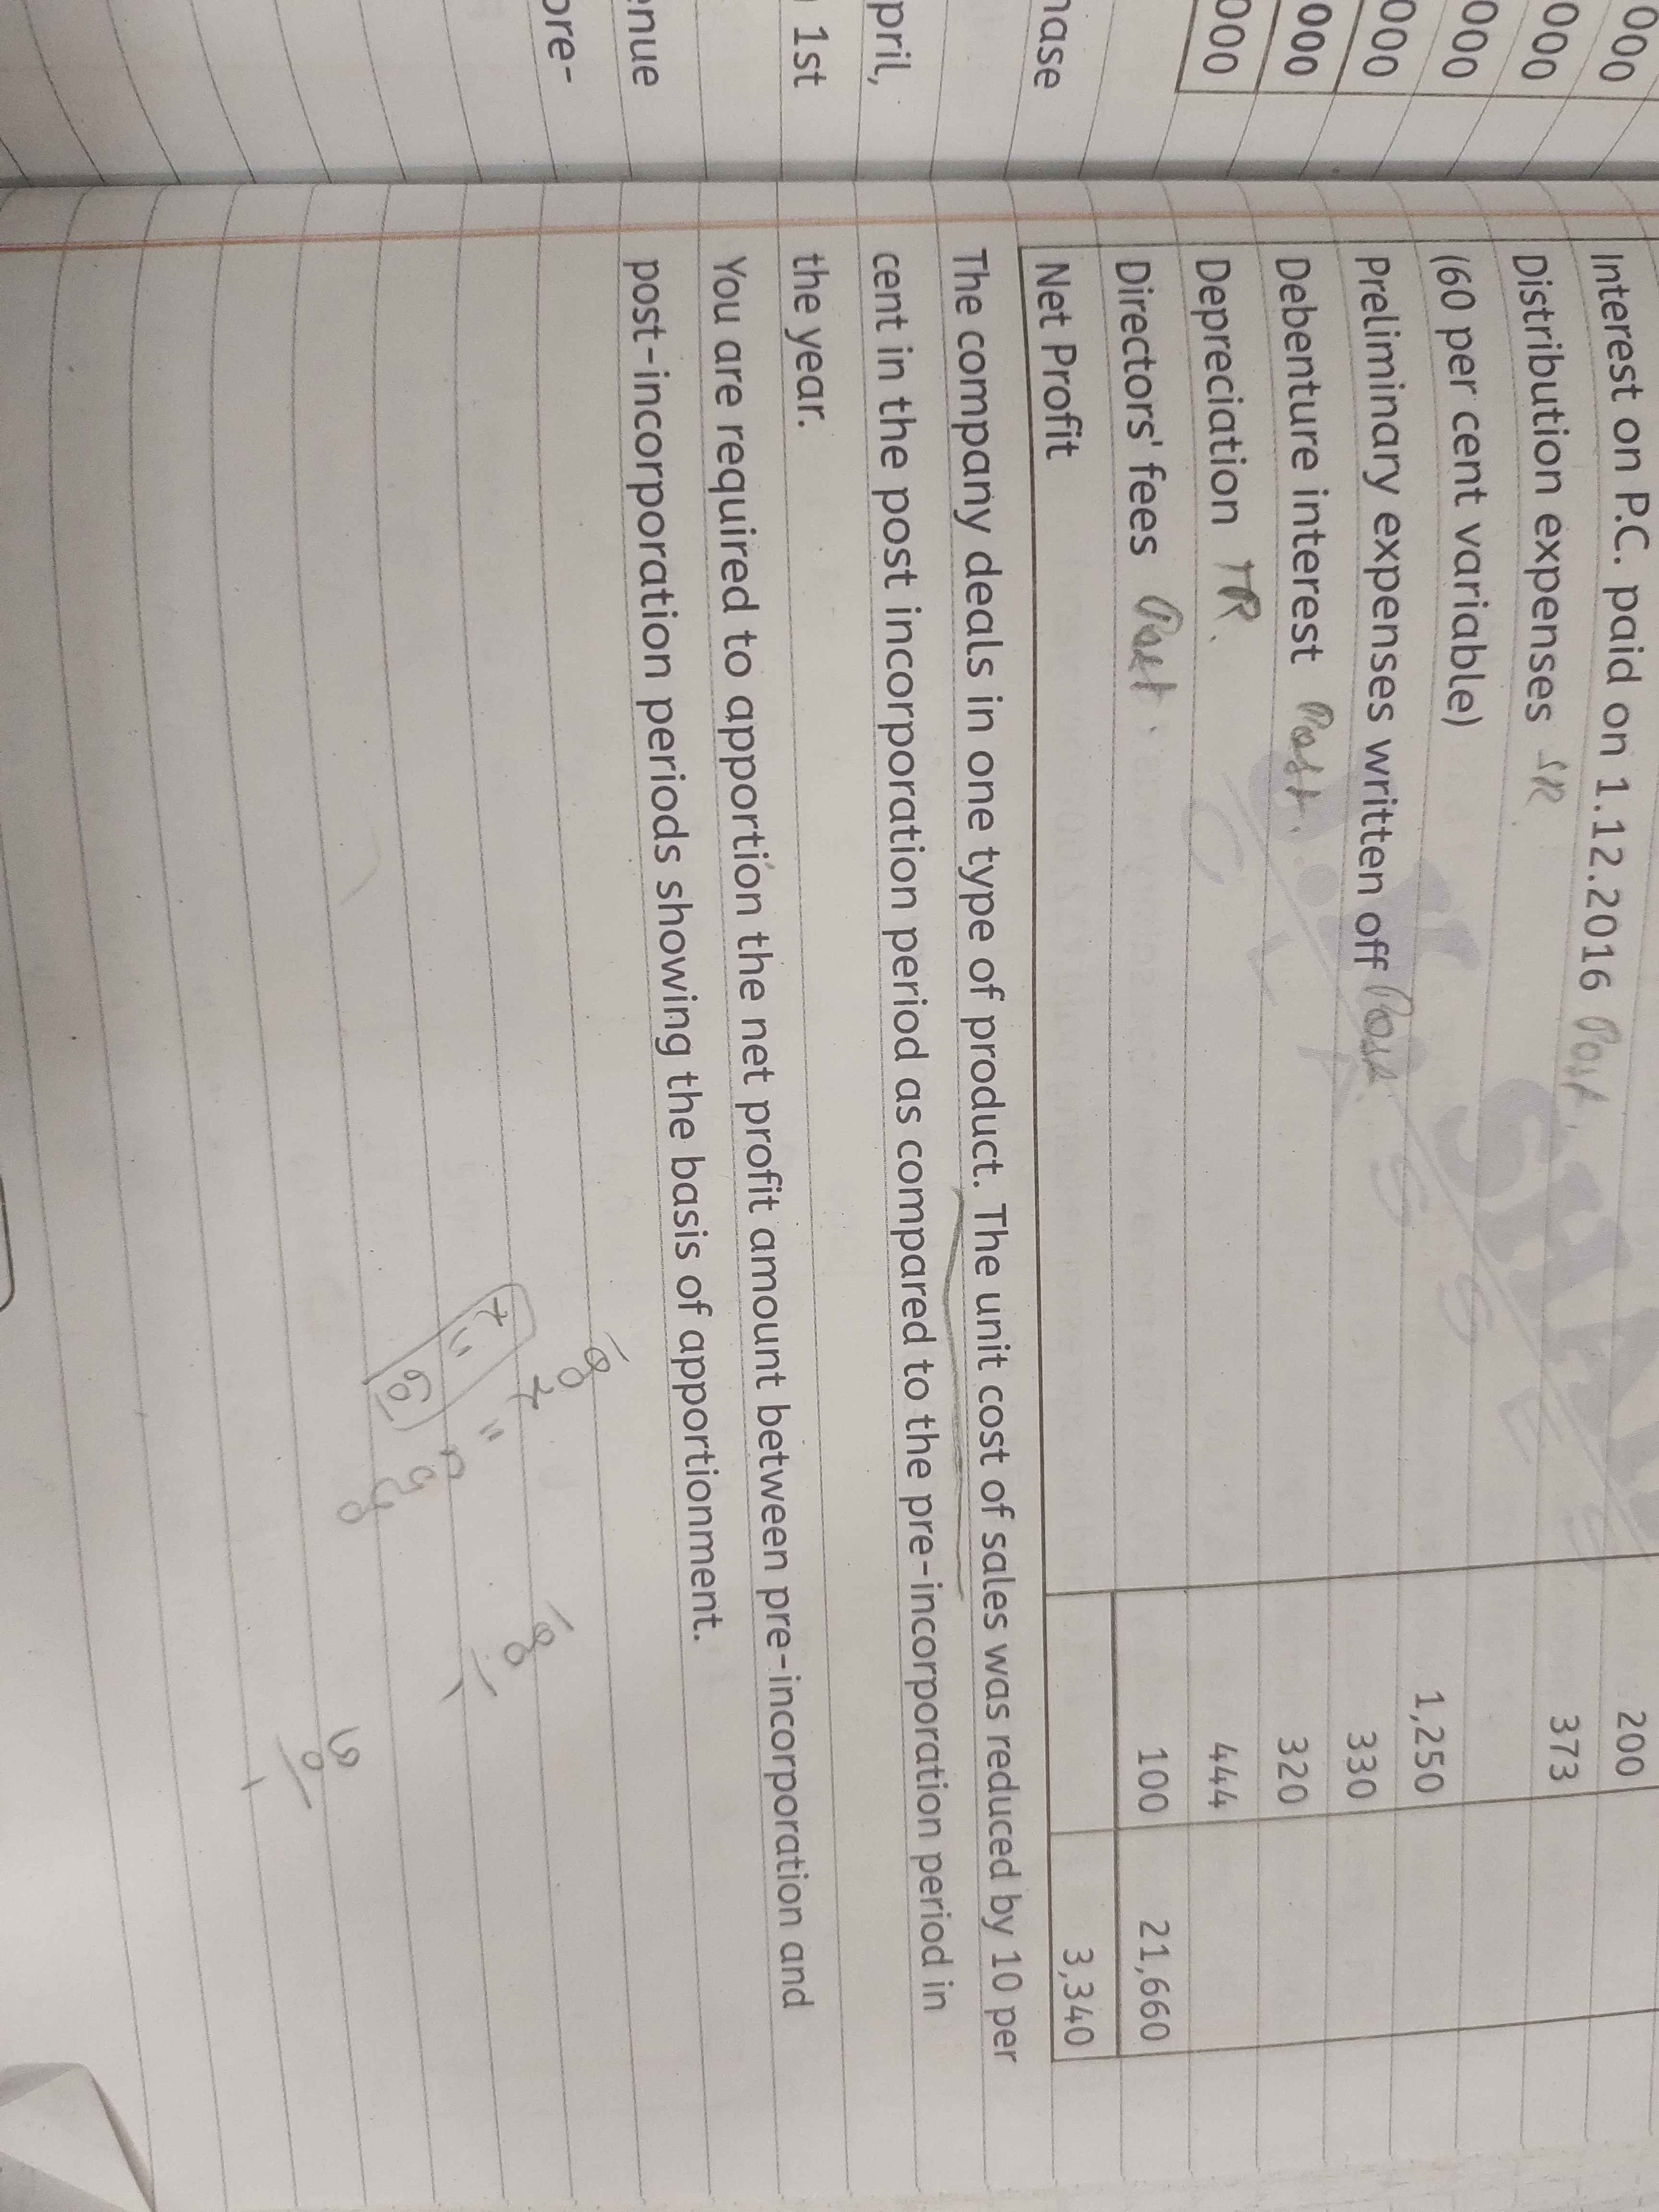 000
000
000
000
000
000
hase
pril,
1st
enue
ore-
Interest on P.C. paid on 1.12.2016 Post. 200
Distribution expenses SR. 373
(60 per cent variable)
1,250
Preliminary expenses written off Post 330
Debenture interest Post. 320
Depreciation TR. 444
Directors' fees Post. 100 21,660
Net Profit 3,340
The company deals in one type of product. The unit cost of sales was reduced by 10 per
cent in the post incorporation period as compared to the pre-incorporation period in
the year.
You are required to apportion the net profit amount between pre-incorporation and
post-incorporation periods showing the basis of apportionment.